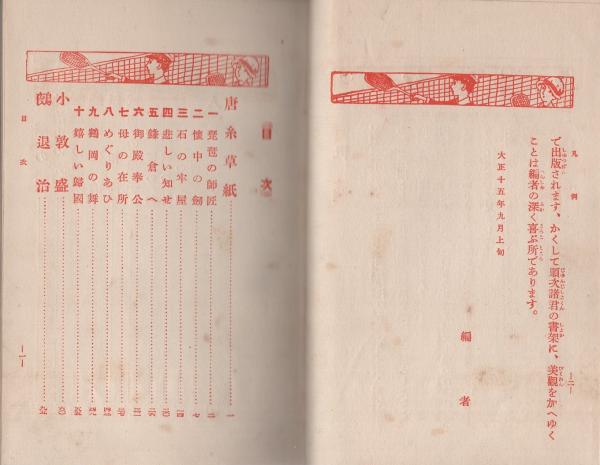 凡例
で出版されます、かくして順次諸君の書架に、美觀をかへゆく
ことは編者の深く喜ぶ所であります。
大正十五年九月上旬
編者
―二―
目次
唐糸草紙……一
一 琵琶の師匠……二
二 懷中の劍……七
三 石の牢屋……一四
四 悲しい知せ
五 鎌倉へ
六 御殿奉公
七 母の在所
八 めぐりあひ
九 鶴岡の舞
十 嬉しい歸國
小敦盛
鵺退治
目次
―一―